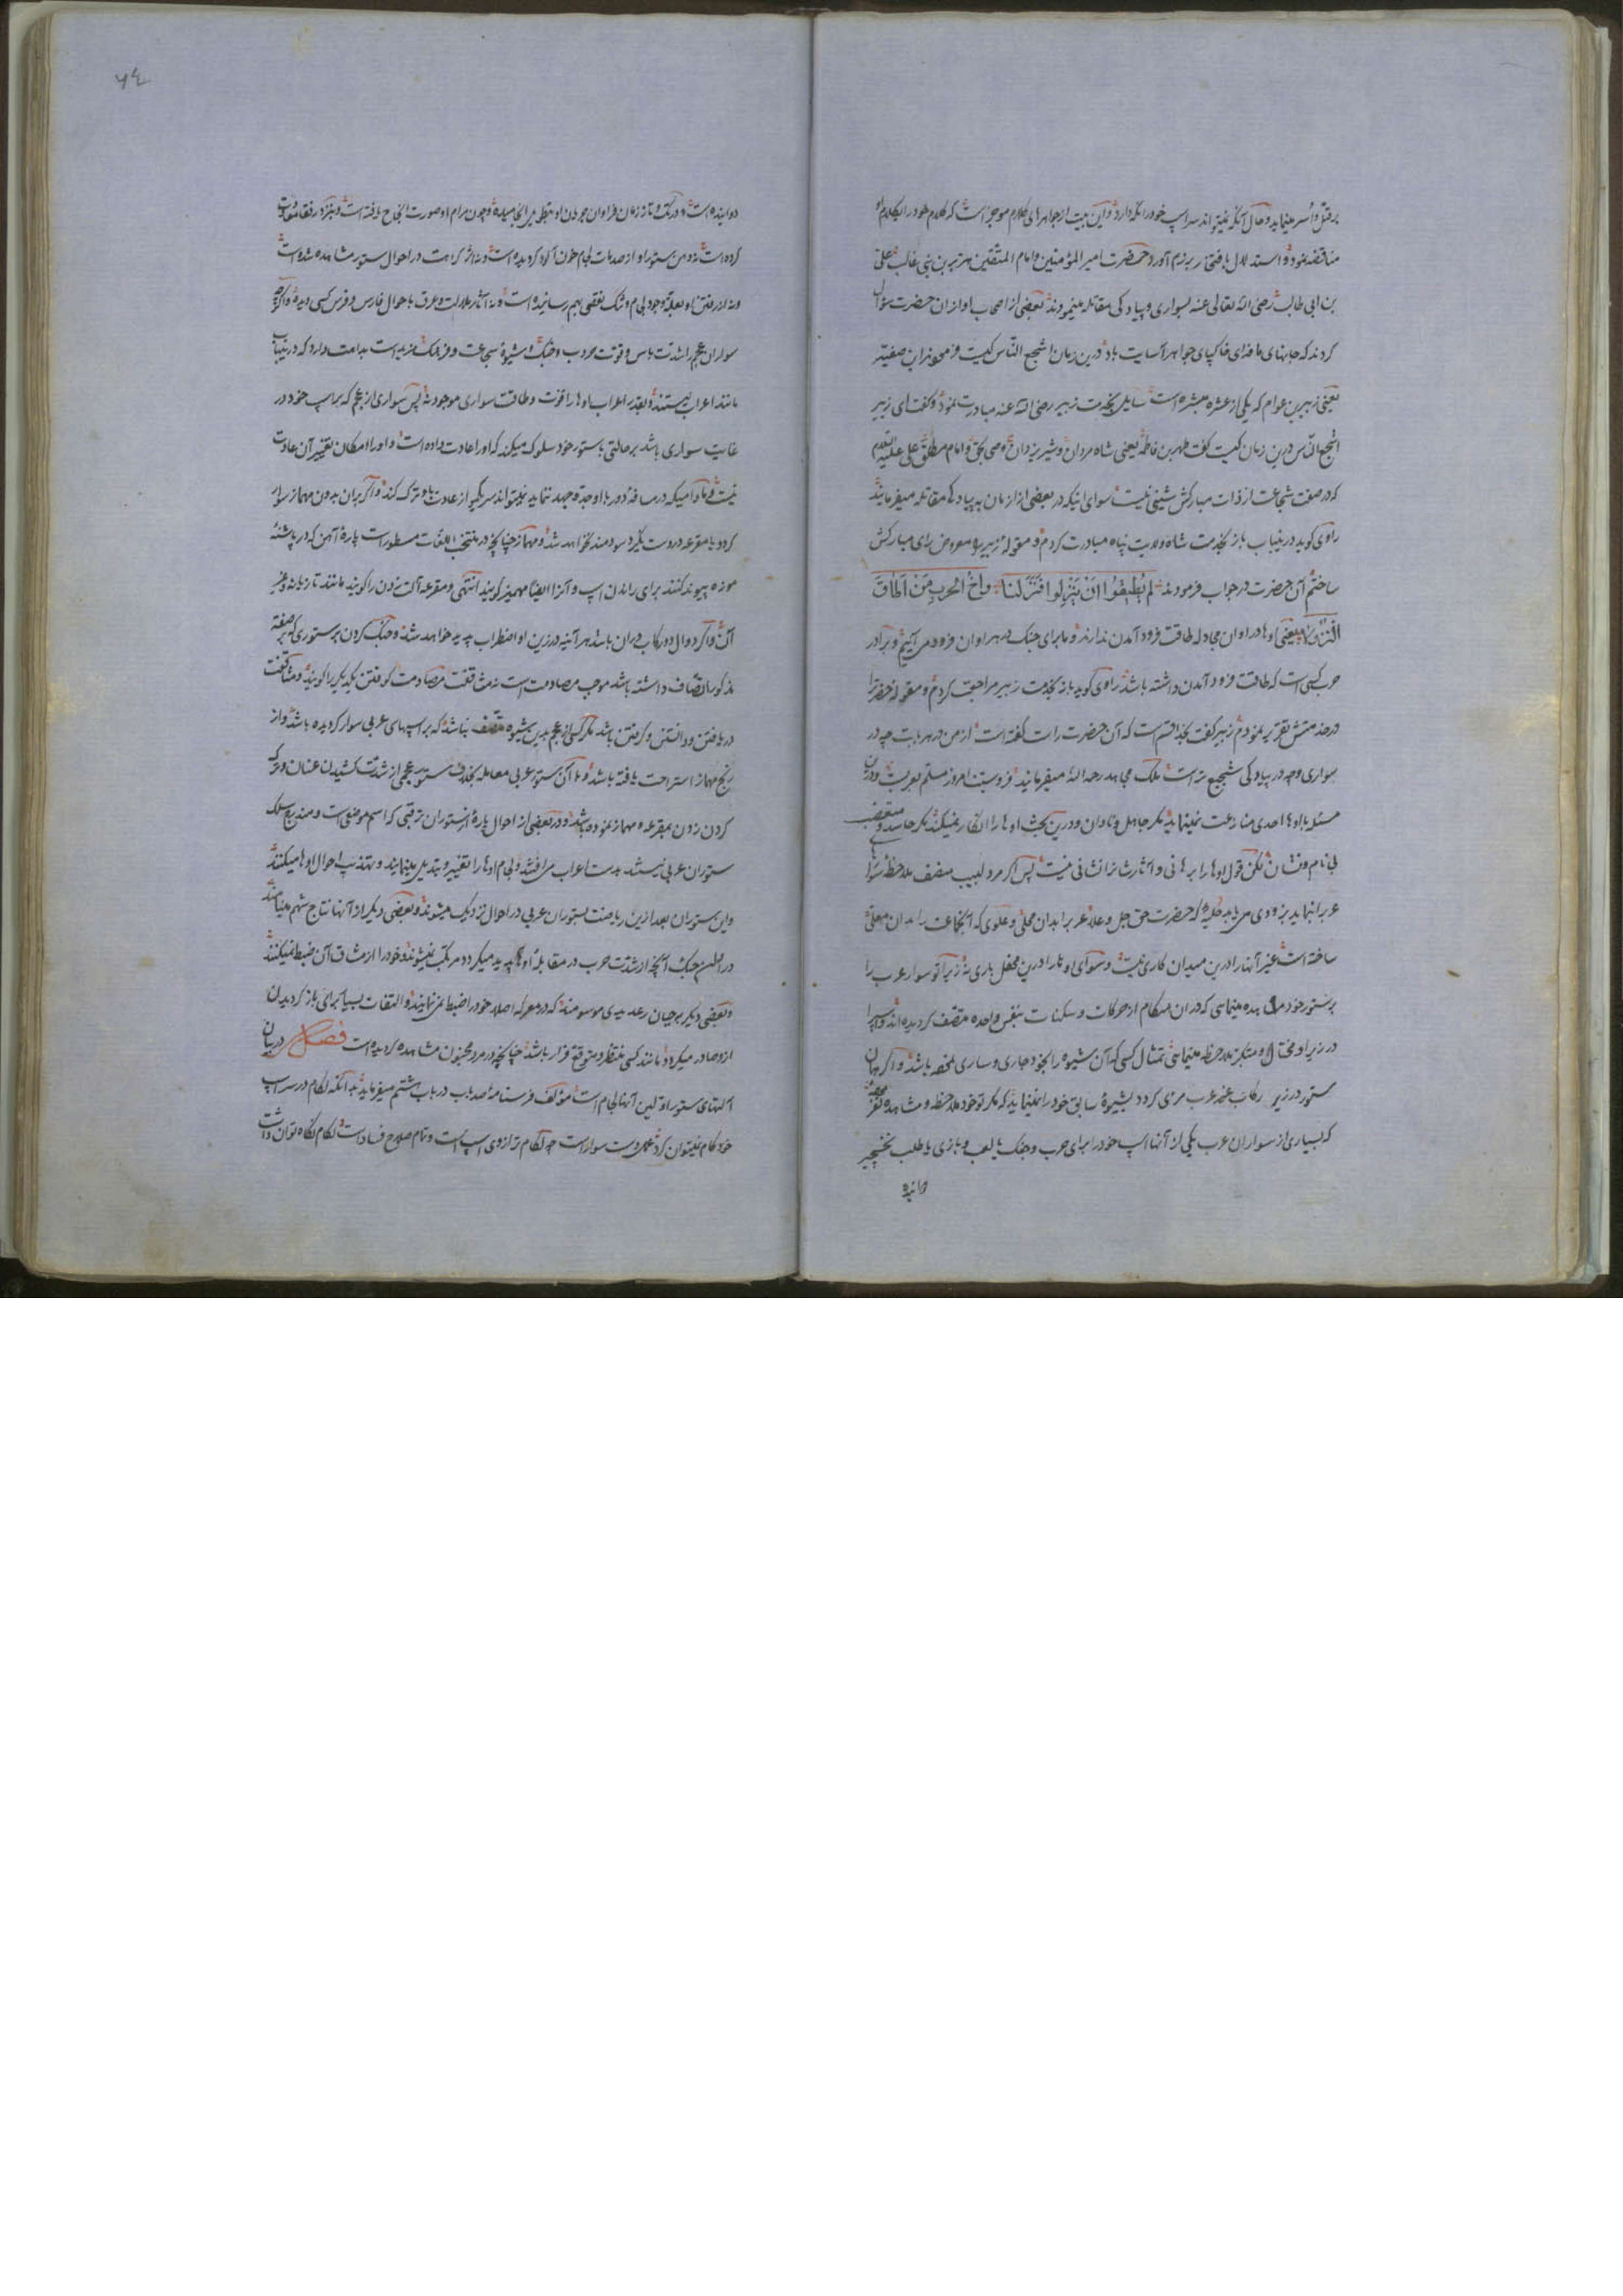 بر قتل و اسر مینماید و حال آنکه نمیتواند سر اسپ خود را نگه دارد و این بیت از جواهرهای کلام موجز است که کلام خود را بکلام او
مناقضه نمود و استدلال بافتخار بر بزم آورد حضرت امیر المؤمنین و امام المتقین هزبر بن بنی غالب علی
بن ابی طالب رضی الله تعالی عنه بسواری و پیادکی مقاتله مینمودند بعضی از اصحاب او از ان حضرت سؤال
کردند که جانهای ما فدای خاکپای جواهر آسایت باد درین زمان اشجع الناس کیست فرمودند ابن صفیه
یعنی زبیر بن عوام که یکی از عشره مبشره است سایل بخدمت زبیر رضی الله عنه مبادرت نمود و کفت ای زبیر
اشجع الناس درین زمان کیست کفت شوهر فاطمه یعنی شاه مردان و شیر یزدان وصی بحق و امام مطلق علی علیه
که در صفت شجاعت از ذات مبارکش شیئی نیست سوای اینکه در بعضی از ازمان به پیادکی مقاتله میفرمایند
راوی کوید درینباب باز بخدمت شاه ولایت پناه مبادرت کردم و مقوله زبیر را معروض رای مبارکش
ساختم آن حضرت در جواب فرمودند لم یطیقوا ان ینزلوا فنزلنا و اخ الحرب من اطاق
النزولا یعنی اوها در اوان مجادله طاقت فرود آمدن ندارند و ما برای جنک در هر اوان فرود می آییم و برادر
حرب کسی است که طاقت فرود آمدن داشته باشد راوی کوید باز بخدمت زبیر مراجعت کردم و مقوله حضرترا
در خدمتش تقریر نمودم زبیر کفت بخدا قسم است که آن حضرت راست کفته است از من در هر بابت چه در
سواری و چه در پیادکی شجیع تر است ملک مجاهد رحمه الله میفرمایند فروسیت امروز مسلم بعرب است و درین
مسئله با اوها احدی منازعت نمینماید مکر جاهل و نادان و درین بحث اوها را انکار نمیکند مکر حاسد و متعصب
بی نام و نشان لکن قول اوها را برهانی و آثارشانرا نشانی نیست پس اکر مرد لبیب منصف ملاحظه سواران
عرب را نماید بزودی می یابد حلیه که حضرت حق جل و علا عرب را بدان محلی و علوی که انجماعت را بدان معلی
ساخته است غیر آنها را درین میدان کاری نیست و سوای اوها را درین محفل باری نه زیرا تو سوار عرب را
بر ستور خود مشاهده مینمایی که در ان هنکام از حرکات و سکنات بنفس واحده متصف کردیده اند و اسپ را
در زیر او مختال و متکبر ملاحظه مینمایی تمثال کسی که آن شیوه را بخود جاری و ساری مخصه باشد و اکر همان
ستور در زیر رکاب غیر عرب مرئی کردد بشیوهٔ سابق خود را نمینماید که مکر تو خود ملاحظه و مشاهده
که بسیاری از سواران عرب یکی از آنها اسپ خود را برای حرب و جنک یا لعب و بازی یا طلب نخچیر
دوانیده
۵۴
دوانیده است و درنک و تا زمان فراوان جولان او بطول میانجامیده و چون مرام او صورت انجاح یافته است
کرده است نه دهن ستور او از صدمات لجام خون آلود کردیده است و نه اثر کراهت در احوال ستور مشاهده شده است
و نه از رفتن او بعلت وجود لجام و تنک نقصی بهم رسانیده است و نه آثار ملالت و عرق باحوال فارس و فرس کسی دیده و اکرچه
سواران عجم را شدت باس و قوت حروب و جنک و شیوهٔ شجاعت و فرهنک مزید است بداهت دارد که درینباب
مانند اعراب نیستند و بقدر اعراب اوها را قوت و طاقت سواری موجود نه پس سواری از عجم که بر اسپ خود در
غایت سواری باشد بر حالتی باستور خود سلوک میکند که او را عادت داده است و او را امکان تغییر آن عادت
نیست و مادامیکه در مسافهٔ دور با او جد و جهد ننماید نمیتواند سر یکی از عادت او ترک کند و اکر بران بدون مهماز سوار
کردد یا مقرعه در دست بکیرد سودمند نخواهد شد و مهماز چنانچه در منتخب اللغات مسطور است پارهٔ آهن که در پاشنهٔ
موزه پیوند کنند برای راندن اسپ و آنرا ایضا مهمیز کویند انتهی و مقرعه آلت زدن را کویند مانند تازیانه و غیر
آن و اکر دوال و رکاب دران باشد هر آئینه در زین او اضطراب پدید خواهد شد و جنک کردن بر ستوری که بصفة
مذکوره اتصاف داشته باشد موجب مصادمت است نه مثاقفت مصادمت کوفتن یکدیکر را کویند و مثاقفت
دریافتن و دانستن و کرفتن باشد مکر کسی از عجم بدین شیوه متصف نباشد که بر اسپهای عربی سوار کردیده باشد و از
رنج مهماز استراحت یافته باشد و با آن ستور عربی معامله بخلاف ستور عجمی از شدت کشیدن عنان و حرکت
کردن زدن بمقرعه و مهماز نموده باشد و در بعضی از احوال پارهٔ از ستوران برقبی که اسم موضعی است و صندیع سلک
ستوران عربی نیستند بدست اعراب می افتند و لجام اوها را تغییر و تبدیل مینمایند و بتهذیب احوال اوها میکنند
و این ستوران بعد ازین ریاضت بستوران عربی در احوال نزدیک میشوند و بعضی دیکر از آنها نتاج شهم مینامند
در اماکن جنک آنچه از شدت حرب در مقابلهٔ اوها پدید میکردد مرتکب نمیشوند و خود را از مشاق آن ضبط نمیکنند
و بعضی دیکر بر جبان رعدیدی موسومند که در معرکه اصلا خود را ضبط نمی نمایند و التفات بسیار برای باز کردیدن
از و صادر میکردد مانند کسی منتظر و متوقع فرار باشد چنانچه در مرد مجنون مشاهده کردیده است فصل در بیان
آلتهای ستور اولین آنها لجام است مؤلف فرسنامهٔ صد باب در باب هشتم میفرماید بدانکه لکام در سر اسپ
خود کام نمیتوان کرد عمل دست سوار است چه لکام ترازوی اسپ است و تمام صلاح و فساد است لکام نکاه توان داشت